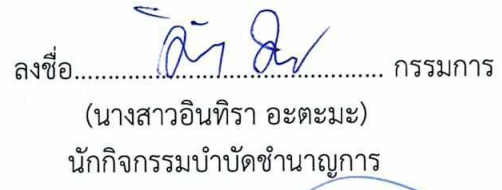 ลงชื่อ............................................ กรรมการ
(นางสาวอินทิรา อะตะมะ)
นักกิจกรรมบำบัดชำนาญการ